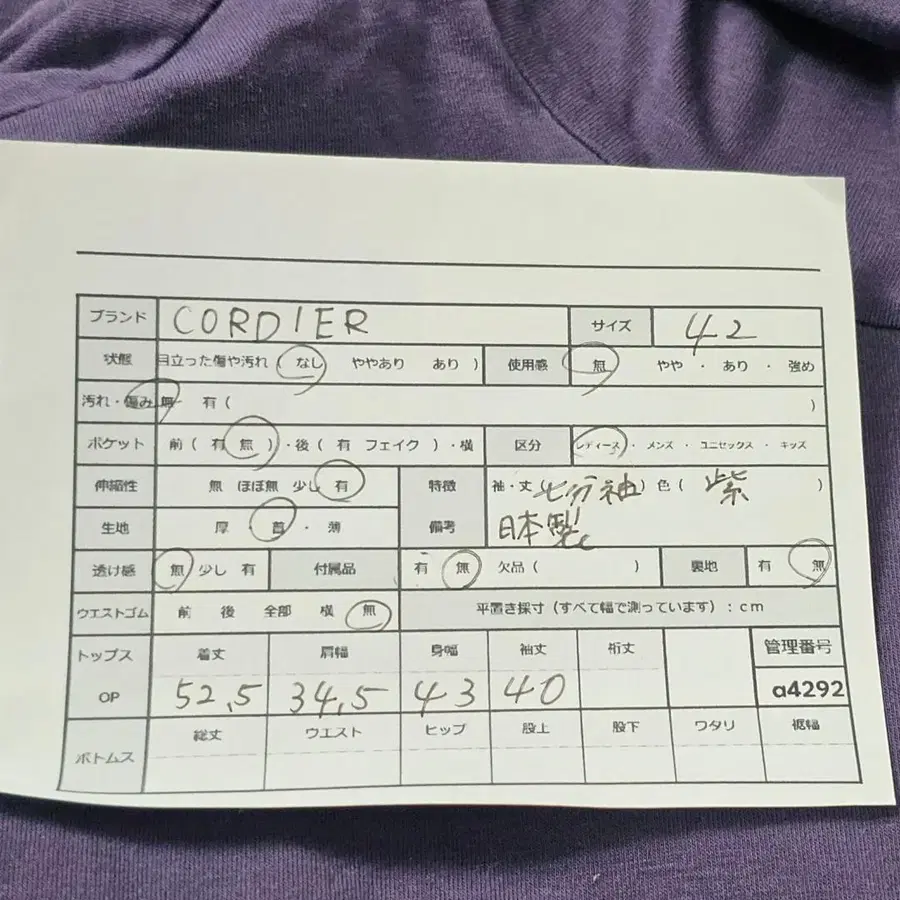 ブランド CORDIER サイズ 42
状態 目立った傷や汚れ ( なし ややあり あり ) 使用感 無 やや ・ あり ・ 強め
汚れ・傷み 無 有 ( )
ポケット 前 ( 有 無 ) ・後 ( 有 フェイク ) ・横 区分 レディース ・ メンズ ・ ユニセックス ・ キッズ
伸縮性 無 ほぼ無 少し 有 特徴 袖・丈 (七分袖) 色 ( 紫 )
生地 厚 ・ 普 ・ 薄 備考 日本製
透け感 無 少し 有 付属品 有 無 欠品 ( ) 裏地 有 無
ウエストゴム 前 後 全部 横 無 平置き採寸 (すべて幅で測っています) : cm
トップス 着丈 肩幅 身幅 袖丈 裄丈 管理番号
OP 52,5 34,5 43 40 a4292
ボトムス 総丈 ウエスト ヒップ 股上 股下 ワタリ 裾幅